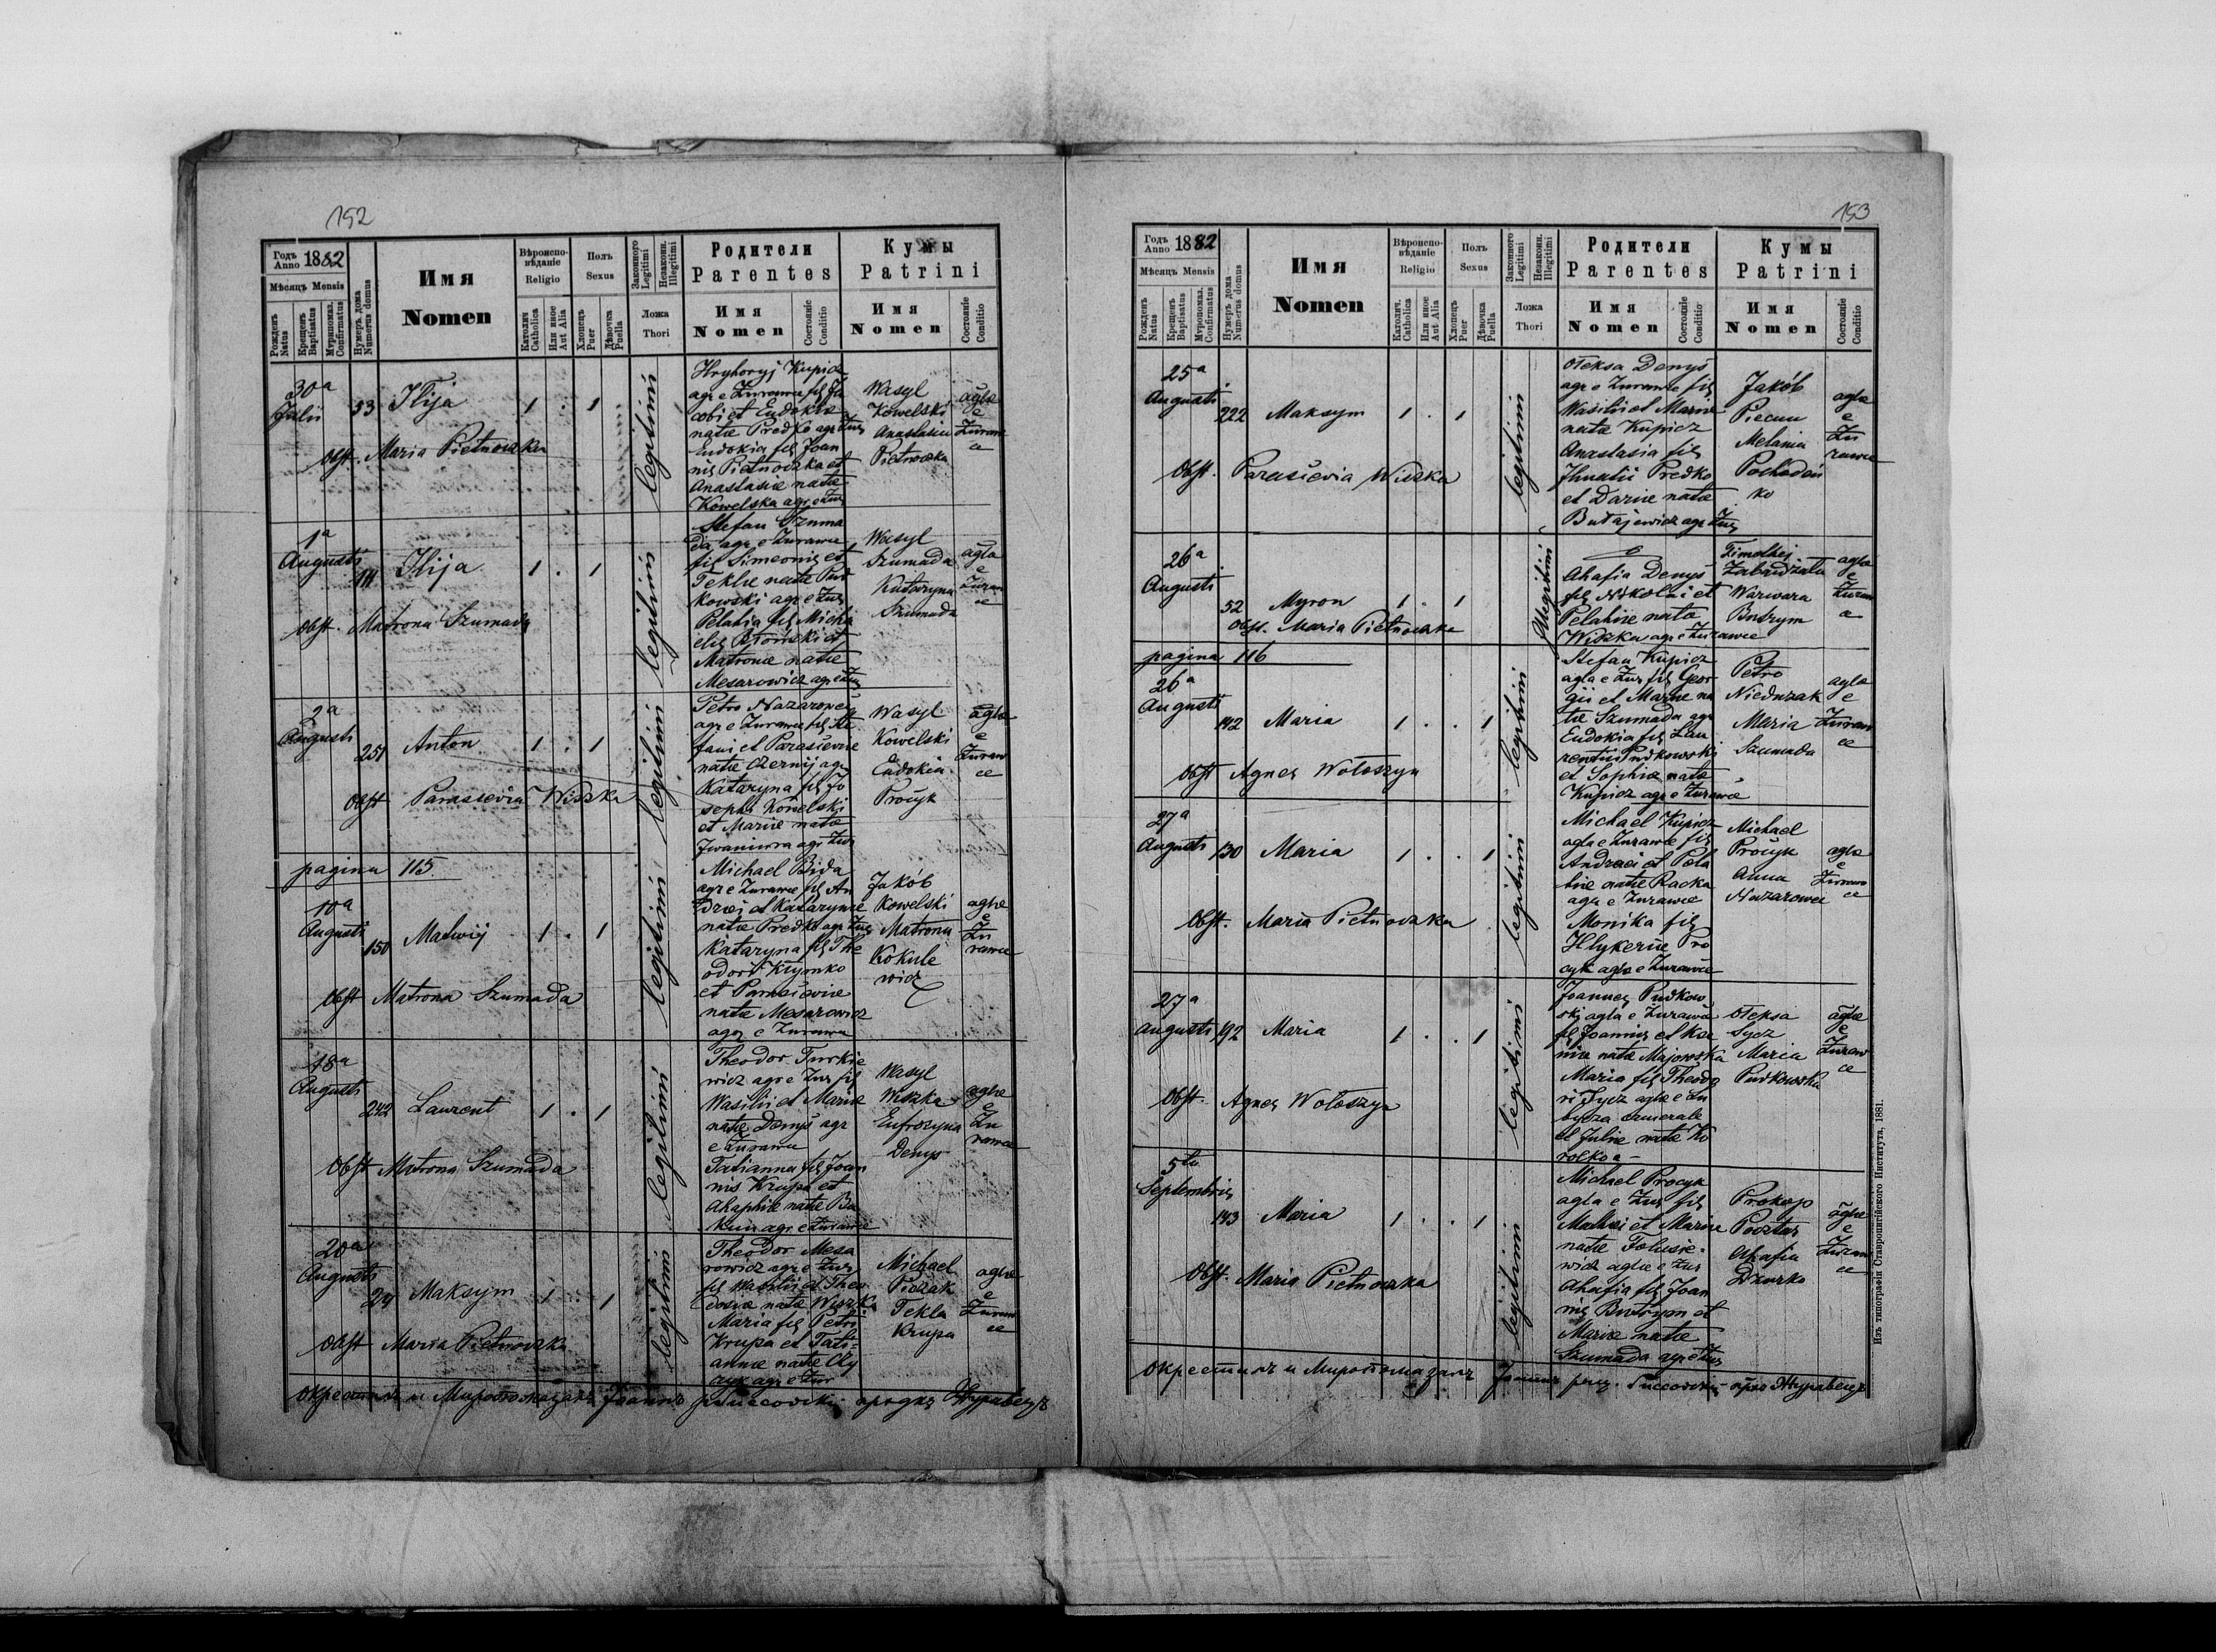 152
Годъ Anno 1882
Мѣсяцъ Mensis
Рожденъ Natus
Крещенъ Baptisatus
Мѵропомаз. Confirmatus
Нумеръ дома Numerus domus
Имя Nomen
Вѣроиспо-вѣданіе Religio
Католич Catholica
Или иное Aut Alia
Полъ Sexus
Хлопецъ Puer
Дѣвочка Puella
Законного Legitimi
Незаконн. Illegitimi
Ложа Thori
Родители Parentes
Имя Nomen
Состояніе Conditio
Кумы Patrini
Имя Nomen
Состояніе Conditio
30a Julii
53 Ilija 1 . 1
Obst. Maria Pietnoczka
legitimi
Hryhoryj Kupicz
agr e Zurawce fil Ja
cobi et Eudokiæ
natæ Predko agr Zur
Eudokia fil Joan
nis Pietnoczka et
Anastasiæ natæ
Kowelska agr e Zur
Wasyl
Kowelski
Anastasia
Pietnoczka
aglæ
e
Zuraw
ce
1a Augusti
111 Ilija 1 . 1
Obst. Matrona Szumada
legitimi
Stefan Szuma
da agr e Zurawce
fil Simeonis et
Teklæ natæ Pud
kowski agr e Zur
Pelahia fil Micha
elis
Matronæ natæ
Mesarowicz agr e Zur
Wasyl
Szumada
Kataryna
Szumada
agla
e
Zuraw
ce
2a Augusti
251 Anton 1 . 1
Obst Parasievia Wiszka
legitimi
Petro Nazarowec
agr e Zurawce fil Ste
fani et Parasieviæ
natæ Czernij agr
Kataryna fil Jo
sephi Kowelski
et Mariæ natæ
agr Zur
Wasyl
Kowelski
Eudokia
Procyk
aglæ
e
Zuraw
ce
pagina 115.
10a Augusti
150 Matwij 1 . 1
Obst Matrona Szumada
legitimi
Michael Bida
agr e Zurawce fil An
drei et Katarynæ
natæ Predko agr Zur
Kataryna fil The
odori Klymko
et Parasieviæ
natæ Mesarowicz
agr e Zurawce
Jakób
Kowelski
Matrona
Kokule
wicz
aglæ
e
Zu
rawce
18a Augusti
242 Laurent 1 . 1
Obst Matrona Szumada
legitimi
Theodor Turkie
wicz agr e Zur fil
Wasilii et Mariæ
natæ Denys agr
e Zurawce
Tatianna fil Joan
nis Krupa et
Ahaphiæ natæ Ba
kun agr e Zurawce
Wasyl
Wiszka
Eufrozyna
Denys
aglæ
e
Zu
rawce
20a Augusti
29 Maksym 1 . 1
Obst Maria Pietnoczka
legitimi
Theodor Mesa
rowicz agr e Zur
fil Wasilii et Theo
dosiæ natæ Wiszka
Maria fil Petri
Krupa et Tati-
annæ natæ Czy
czyk agr e Zur
Michael
Piczak
Tekla
Krupa
aglæ
e
Zuraw
ce
окрестилъ и Миропомазалъ
153
Годъ Anno 1882
Мѣсяцъ Mensis
Рожденъ Natus
Крещенъ Baptisatus
Мѵропомаз. Confirmatus
Нумеръ дома Numerus domus
Имя Nomen
Вѣроиспо-вѣданіе Religio
Католич. Catholica
Или иное Aut Alia
Полъ Sexus
Хлопецъ Puer
Дѣвочка Puella
Законного Legitimi
Незаконн. Illegitimi
Ложа Thori
Родители Parentes
Имя Nomen
Состояніе Conditio
Кумы Patrini
Имя Nomen
Состояніе Conditio
25a Augusti
222 Maksym 1 . 1
Obst. Parasievia Wiszka
legitimi
Oleksa Denys
agr e Zurawce fil
Wasilii et Mariæ
natæ Kupicz
Anastasia fil
Ihnatii Predko
et Dariæ natæ
Bułajewicz agr Zur
Jakób
Piecuu
Melania
ko
aglæ
e
Zu
rawce
26a Augusti
52 Myron 1 . 1
Obst. Maria Pietnoczka
Illegitimi
Ahafia Denys
fil Nikolai et
Pelahiæ natæ
Wiszka agr e Zurawce
Timothej
Warwara
Butrym
aglæ
e
Zuraw
ce
pagina 116
26a Augusti
142 Maria 1 . . 1
Obst Agnes Wołoszyn
legitimi
Stefan Kupicz
agla e Zur fil Geor
gii et Mariæ na
tæ Szumada agr
Eudokia fil Lau
rentii Pudkowski
et Sophiæ natæ
Kupicz agr e Zurawce
Petro
Niedużak
Maria
Szumada
aglæ
e
Zuraw
ce
27a Augusti
130 Maria 1 . . 1
Obst. Maria Pietnoczka
legitimi
Michael Kupicz
agla e Zurawce fil
Andreæ et Pela
hiæ natæ Racka
agr e Zurawce
Monika fil
Hlykeriæ Pro
cyk aglæ e Zurawce
Michael
Procyk
Anna
Nazarowec
aglæ
e
Zuraw
ce
27a Augusti
192 Maria 1 . . 1
Obst. Agnes Wołoszyn
legitimi
Joannes Pudkow
ski agla e Zurawce
fil Joannis et Xe
niæ natæ Majowska
Maria fil Theodo
ri Sycz aglæ e Lu
bycza camerale
et Juliæ natæ Ko
rolko a -
Oleksa
Sycz
Maria
Pudkowska
aglæ
e
Zuraw
ce
5ta Septembris
143 Maria 1 . . 1
Obst. Maria Pietnoczka
legitimi
Michael Procyk
agla e Zur fil
Mathei et Mariæ
natæ Tolusie-
wicz aglæ e Zur
Ahafia fil Joan
nis Butrym et
Mariæ natæ
Szumada agr e Zur
Prokop
Pocztar
Ahafia
Dziurko
aglæ
e
Zuraw
ce
окрестилъ и Миропомазалъ
Изъ типографіи Ставропигійского Института, 1881.